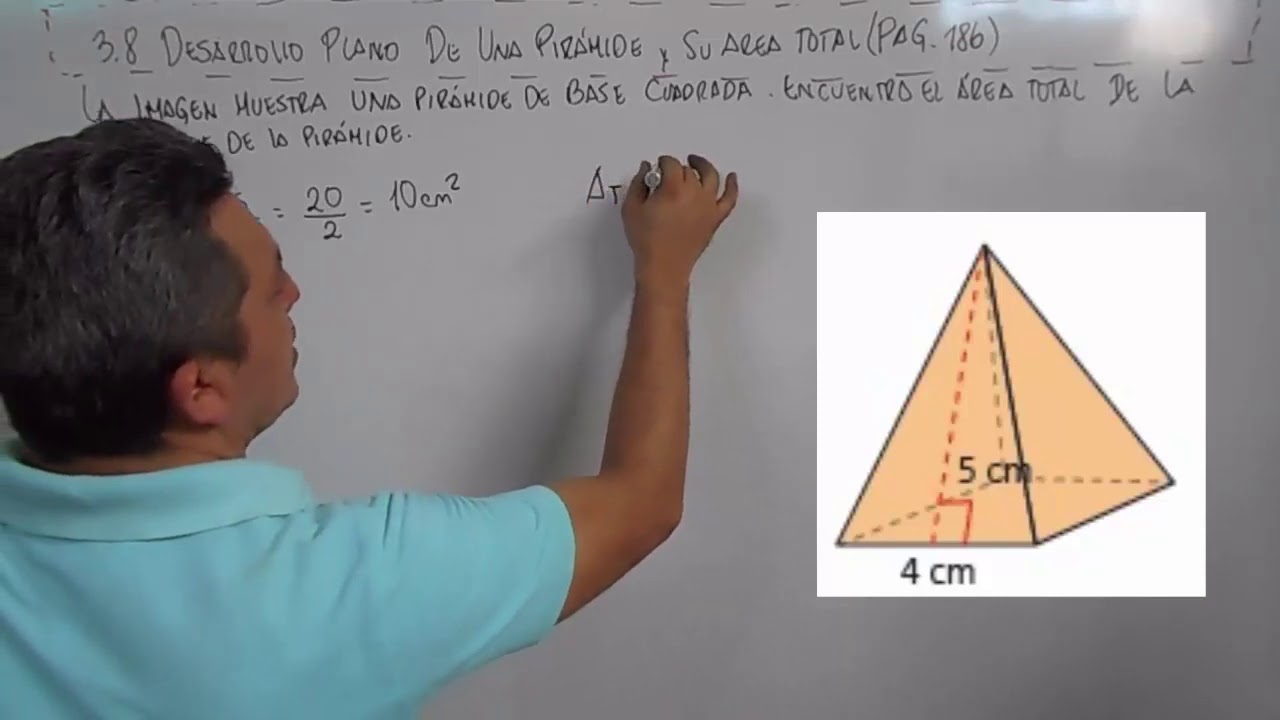 3.8 DESARROLLO PLANO DE UNA PIRÁMIDE y SU AREA TOTAL (PAG. 186)
LA IMAGEN MUESTRA UNA PIRÁMIDE DE BASE CUADRADA. ENCUENTRA EL ÁREA TOTAL DE LA
DE LA PIRÁMIDE.
= 20/2 = 10 cm²
5 cm
4 cm